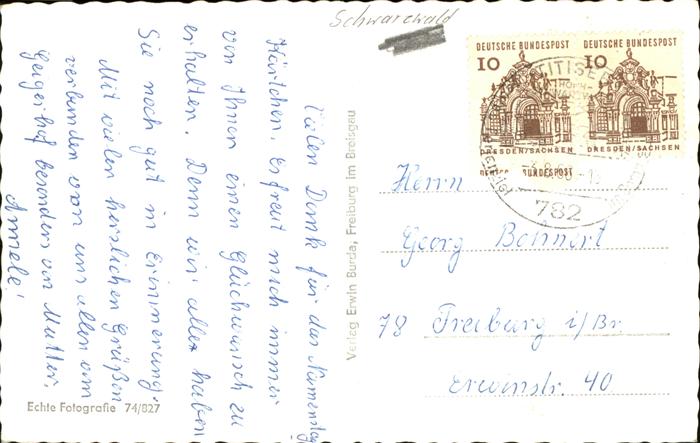 Schwarzwald
Välen Dank für das Namenstag
Kärtchen. Es freut mich immer
von Ihnen einen Glückwunsch zu
erhalten. Denn wir alle haben
Sie noch gut in Erinnerung.
Mit vielen herzlichen Grüßen
verbunden von uns allen vom
Geigerhof besonders von Mutter.
Annele!
Echte Fotografie 74/827
Verlag Erwin Burda, Freiburg im Breisgau
DEUTSCHE BUNDESPOST
10
DRESDEN/SACHSEN
DEUTSCHE BUNDESPOST
10
DRESDEN/SACHSEN
BUNDESPOST
782
Herrn
Georg Bohnert
78 Freiburg i/Br.
Erwinstr. 40